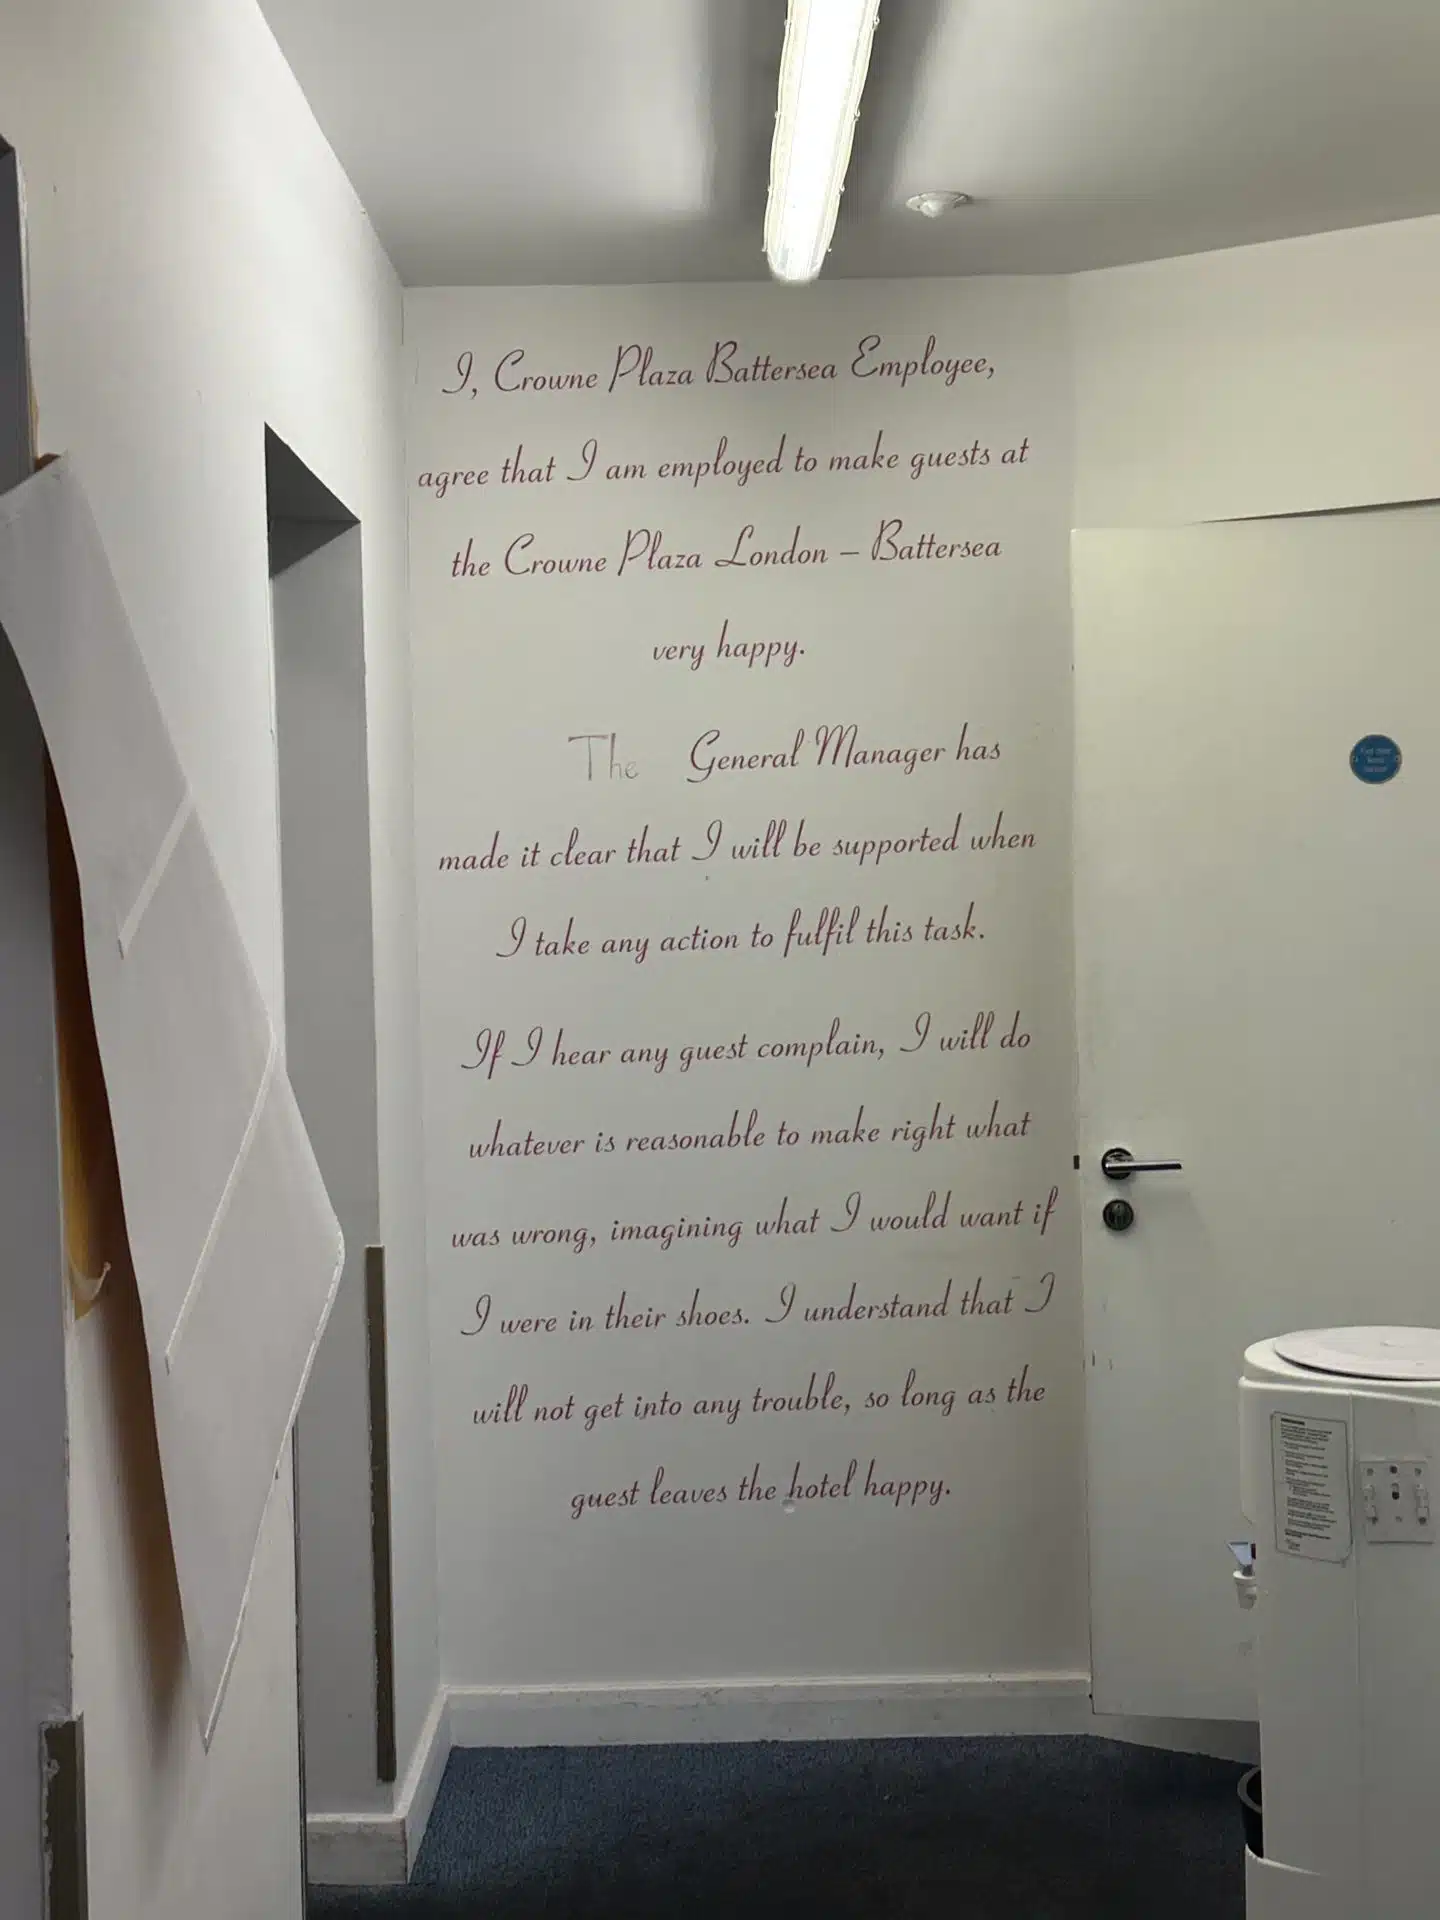 I, Crowne Plaza Battersea Employee,
agree that I am employed to make guests at
the Crowne Plaza London – Battersea
very happy.
The General Manager has
made it clear that I will be supported when
I take any action to fulfil this task.
If I hear any guest complain, I will do
whatever is reasonable to make right what
was wrong, imagining what I would want if
I were in their shoes. I understand that I
will not get into any trouble, so long as the
guest leaves the hotel happy.